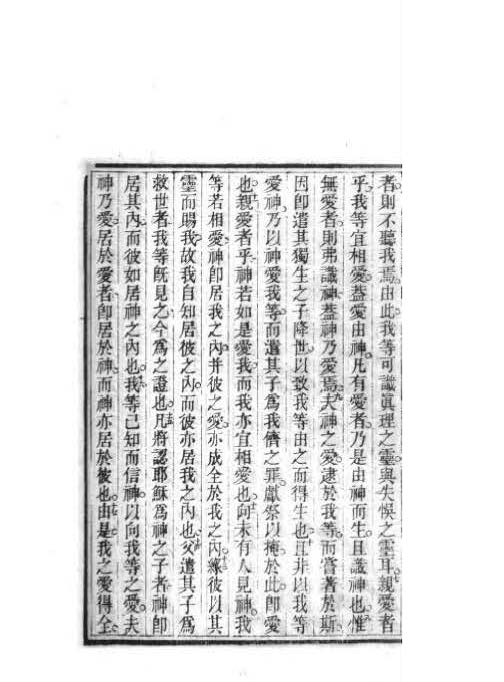 者則不聽我焉由此我等可識眞理之靈與失悞之靈耳親愛者
乎我等宜相愛蓋愛由神凡有愛者乃是由神而生且識神也惟
無愛者則弗識神蓋神乃愛焉夫神之愛逮於我等而當著於斯
因卽遣其獨生之子降世以致我等由之而得生也且非以我等
愛神乃以神愛我等而遣其子爲我儕之罪獻祭以掩於此卽愛
也親愛者乎神若如是愛我而我亦宜相愛也向未有人見神我
等若相愛神卽居我之內并彼之愛亦成全於我之內緣彼以其
靈而賜我故我自知居彼之內而彼亦居我之內也父遣其子爲
救世者我等旣見之今爲之證也凡將認耶穌爲神之子者神卽
居其內而彼如居神之內也我等已知而信神以向我等之愛夫
神乃愛居於愛者卽居於神而神亦居於彼也由是我之愛得全